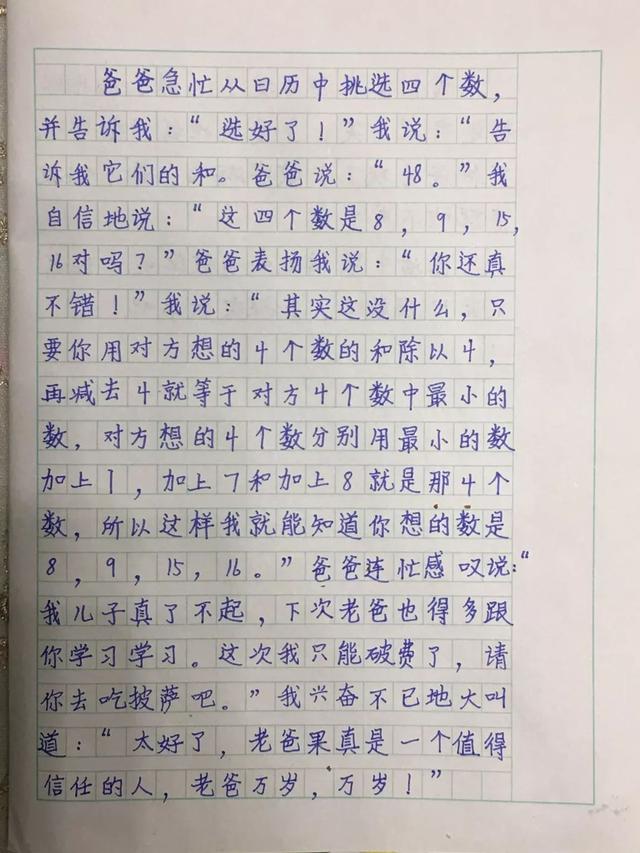 爸爸急忙从日历中挑选四个数，
并告诉我：“选好了！”我说：“告
诉我它们的和。爸爸说：“48。”我
自信地说：“这四个数是8，9，15，
16对吗？”爸爸表扬我说：“你还真
不错！”我说：“其实这没什么，只
要你用对方想的4个数的和除以4，
再减去4就等于对方4个数中最小的
数，对方想的4个数分别用最小的数
加上1，加上7和加上8就是那4个
数，所以这样我就能知道你想的数是
8，9，15，16。”爸爸连忙感叹说：“
我儿子真了不起，下次老爸也得多跟
你学习学习。这次我只能破费了，请
你去吃披萨吧。”我兴奋不已地大叫
道：“太好了，老爸果真是一个值得
信任的人，老爸万岁，万岁！”